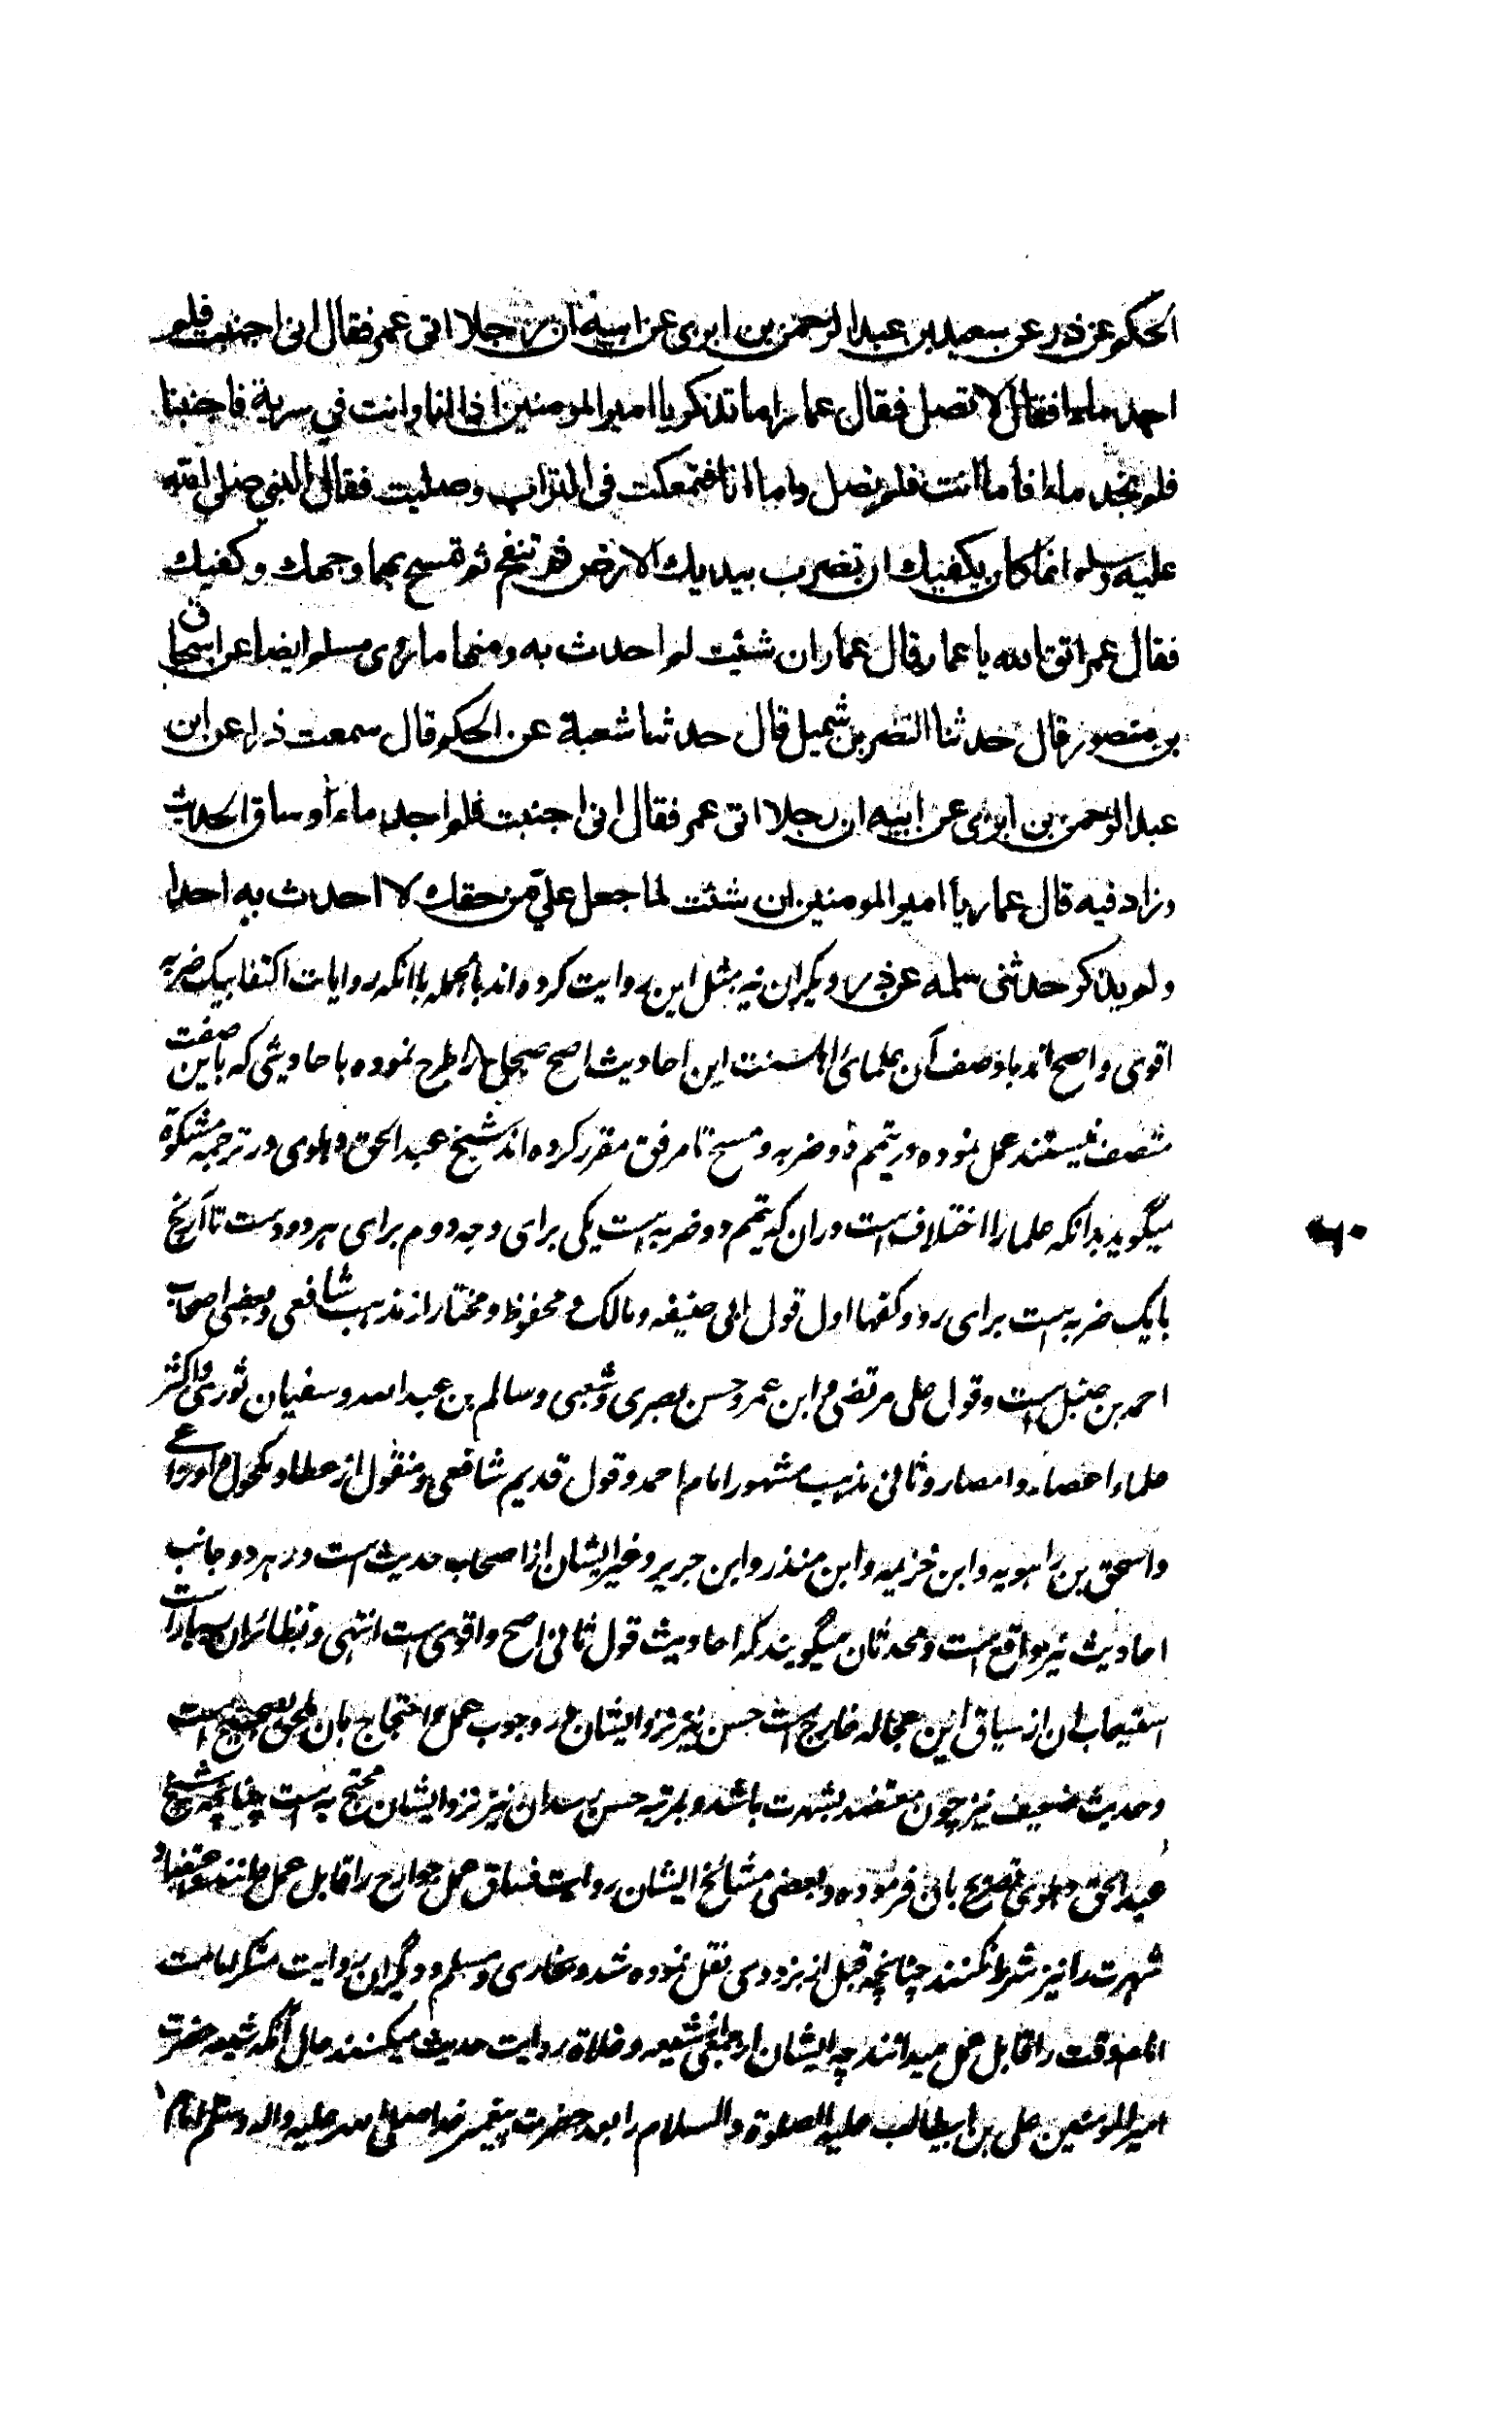 الحكم عن ذر عن سعيد بن عبد الرحمن بن ابزى عن ابيه ان رجلا اتى عمر فقال انى اجنبت فلم
اجد ماء فقال لا تصل فقال عمار اما تذكر يا امير المومنين اذ انا وانت في سرية فاجنبنا
فلم نجد ماء فأما انت فلم تصل واما انا فتمعكت فى التراب وصليت فقال النبي صلى الله
عليه وسلم انما كان يكفيك ان تضرب بيديك الارض ثم تنفخ ثم تمسح بهما وجهك وكفيك
فقال عمر اتق الله يا عمار قال عمار ان شئت لم احدث به ومنها ما روى مسلم ايضا عن اسحاق
بن منصور قال حدثنا النضر بن شميل قال حدثنا شعبة عن الحكم قال سمعت ذرا عن ابن
عبد الرحمن بن ابزى عن ابيه ان رجلا اتى عمر فقال انى اجنبت فلم اجد ماء وساق الحديث
وزاد فيه قال عمار يا امير المومنين ان شئت لما جعل علي من حقك لا احدث به احدا
ولم يذكر حدثنى سلمه عن ذر و ديگران نيز بمثل اين روايت كرده اند بالجمله با انكه روايات اكتفا بيك ضربه
اقوى و اصح اند با وصف آن علمائ اهلسنت اين احاديث اصح صحيح را طرح نموده با حاديثى كه باين صفت
متصف نيستند عمل نموده در تيمم دو ضربه و مسح تا مرفق مقرر كرده اند شيخ عبد الحق دهلوى در ترجمه مشكوة
ميگويد بدانكه علما را اختلاف است در ان كه تيمم دو ضربه است يكى براى وجه دوم براى هر دو دست تا آرنج
يا يك ضربه است براى رو و كفها اول قول ابى حنيفه و مالك و محفوظ و مختار از مذهب شافعى و بعضى اصحاب
احمد بن حنبل است و قول على مرتضى و ابن عمر و حسن بصرى و شعبى و سالم بن عبد الله و سفيان ثورى و اكثر
علماء اعصار و امصار و ثانى مذهب مشهور امام احمد و قول قديم شافعى و منقول از عطا و مكحول و اوزاعے
و اسحق بن راهويه و ابن خزيمه و ابن منذر و ابن جرير و غير ايشان از اصحاب حديث است و در هر دو جانب
احاديث نيز واقع است و محدثان ميگويند كه احاديث قول ثانى اصح و اقوى است انتهى و نظائر ان بسيار است
استيعاب ان از سياق اين عجاله خارج است حسن نيز نزد ايشان در وجوب عمل و احتجاج بان ملحق بصحيح است
و حديث ضعيف نيز چون معتضد بشهرت باشد و بمرتبه حسن رسد ان نيز نزد ايشان محتج به است چنانچه شيخ
عبد الحق دهلوى تصريح بان فرموده و بعضى مشائخ ايشان روايت فساق عمل جوارح را قابل عمل دانند
شهرت را نيز شرط نكنند چنانچه قبل از بزدوى نقل نموده شد و بخارى و مسلم و ديگران روايت منكر امامت
امام وقت را قابل عمل ميدانند چه ايشان از مبغضى شيعه و غلاة روايت حديث ميكنند حال آنكه شيعه حضرت
امير المومنين على بن ابيطالب عليه الصلوة و السلام را بعد حضرت پيغمبر خدا صلى الله عليه و اله و سلم امام